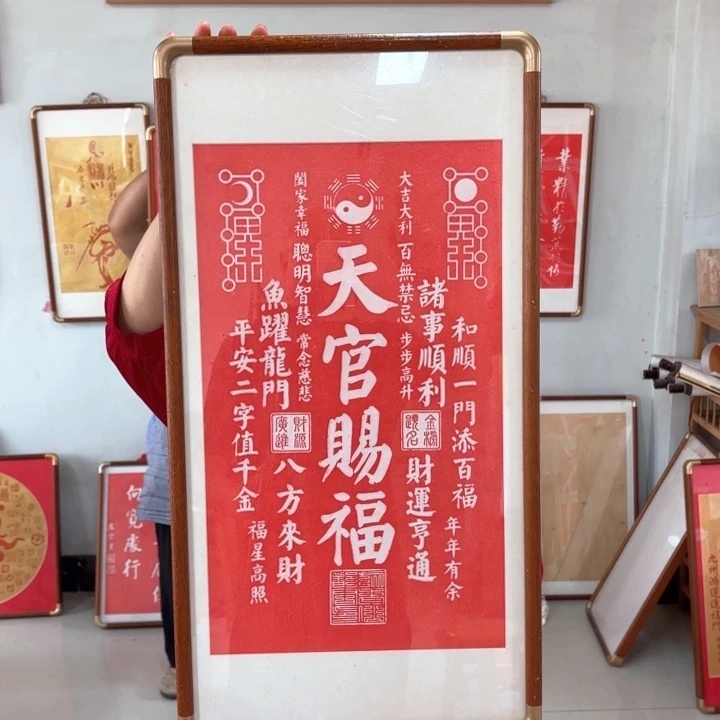 天官賜福
大吉大利 百無禁忌 步步高升
諸事順利
金榜
題名
財運亨通
和順一門添百福
年年有余
闔家幸福 聰明智慧 常念慈悲
魚躍龍門
財源
廣進
八方來財
平安二字值千金
福星高照
何寬處行